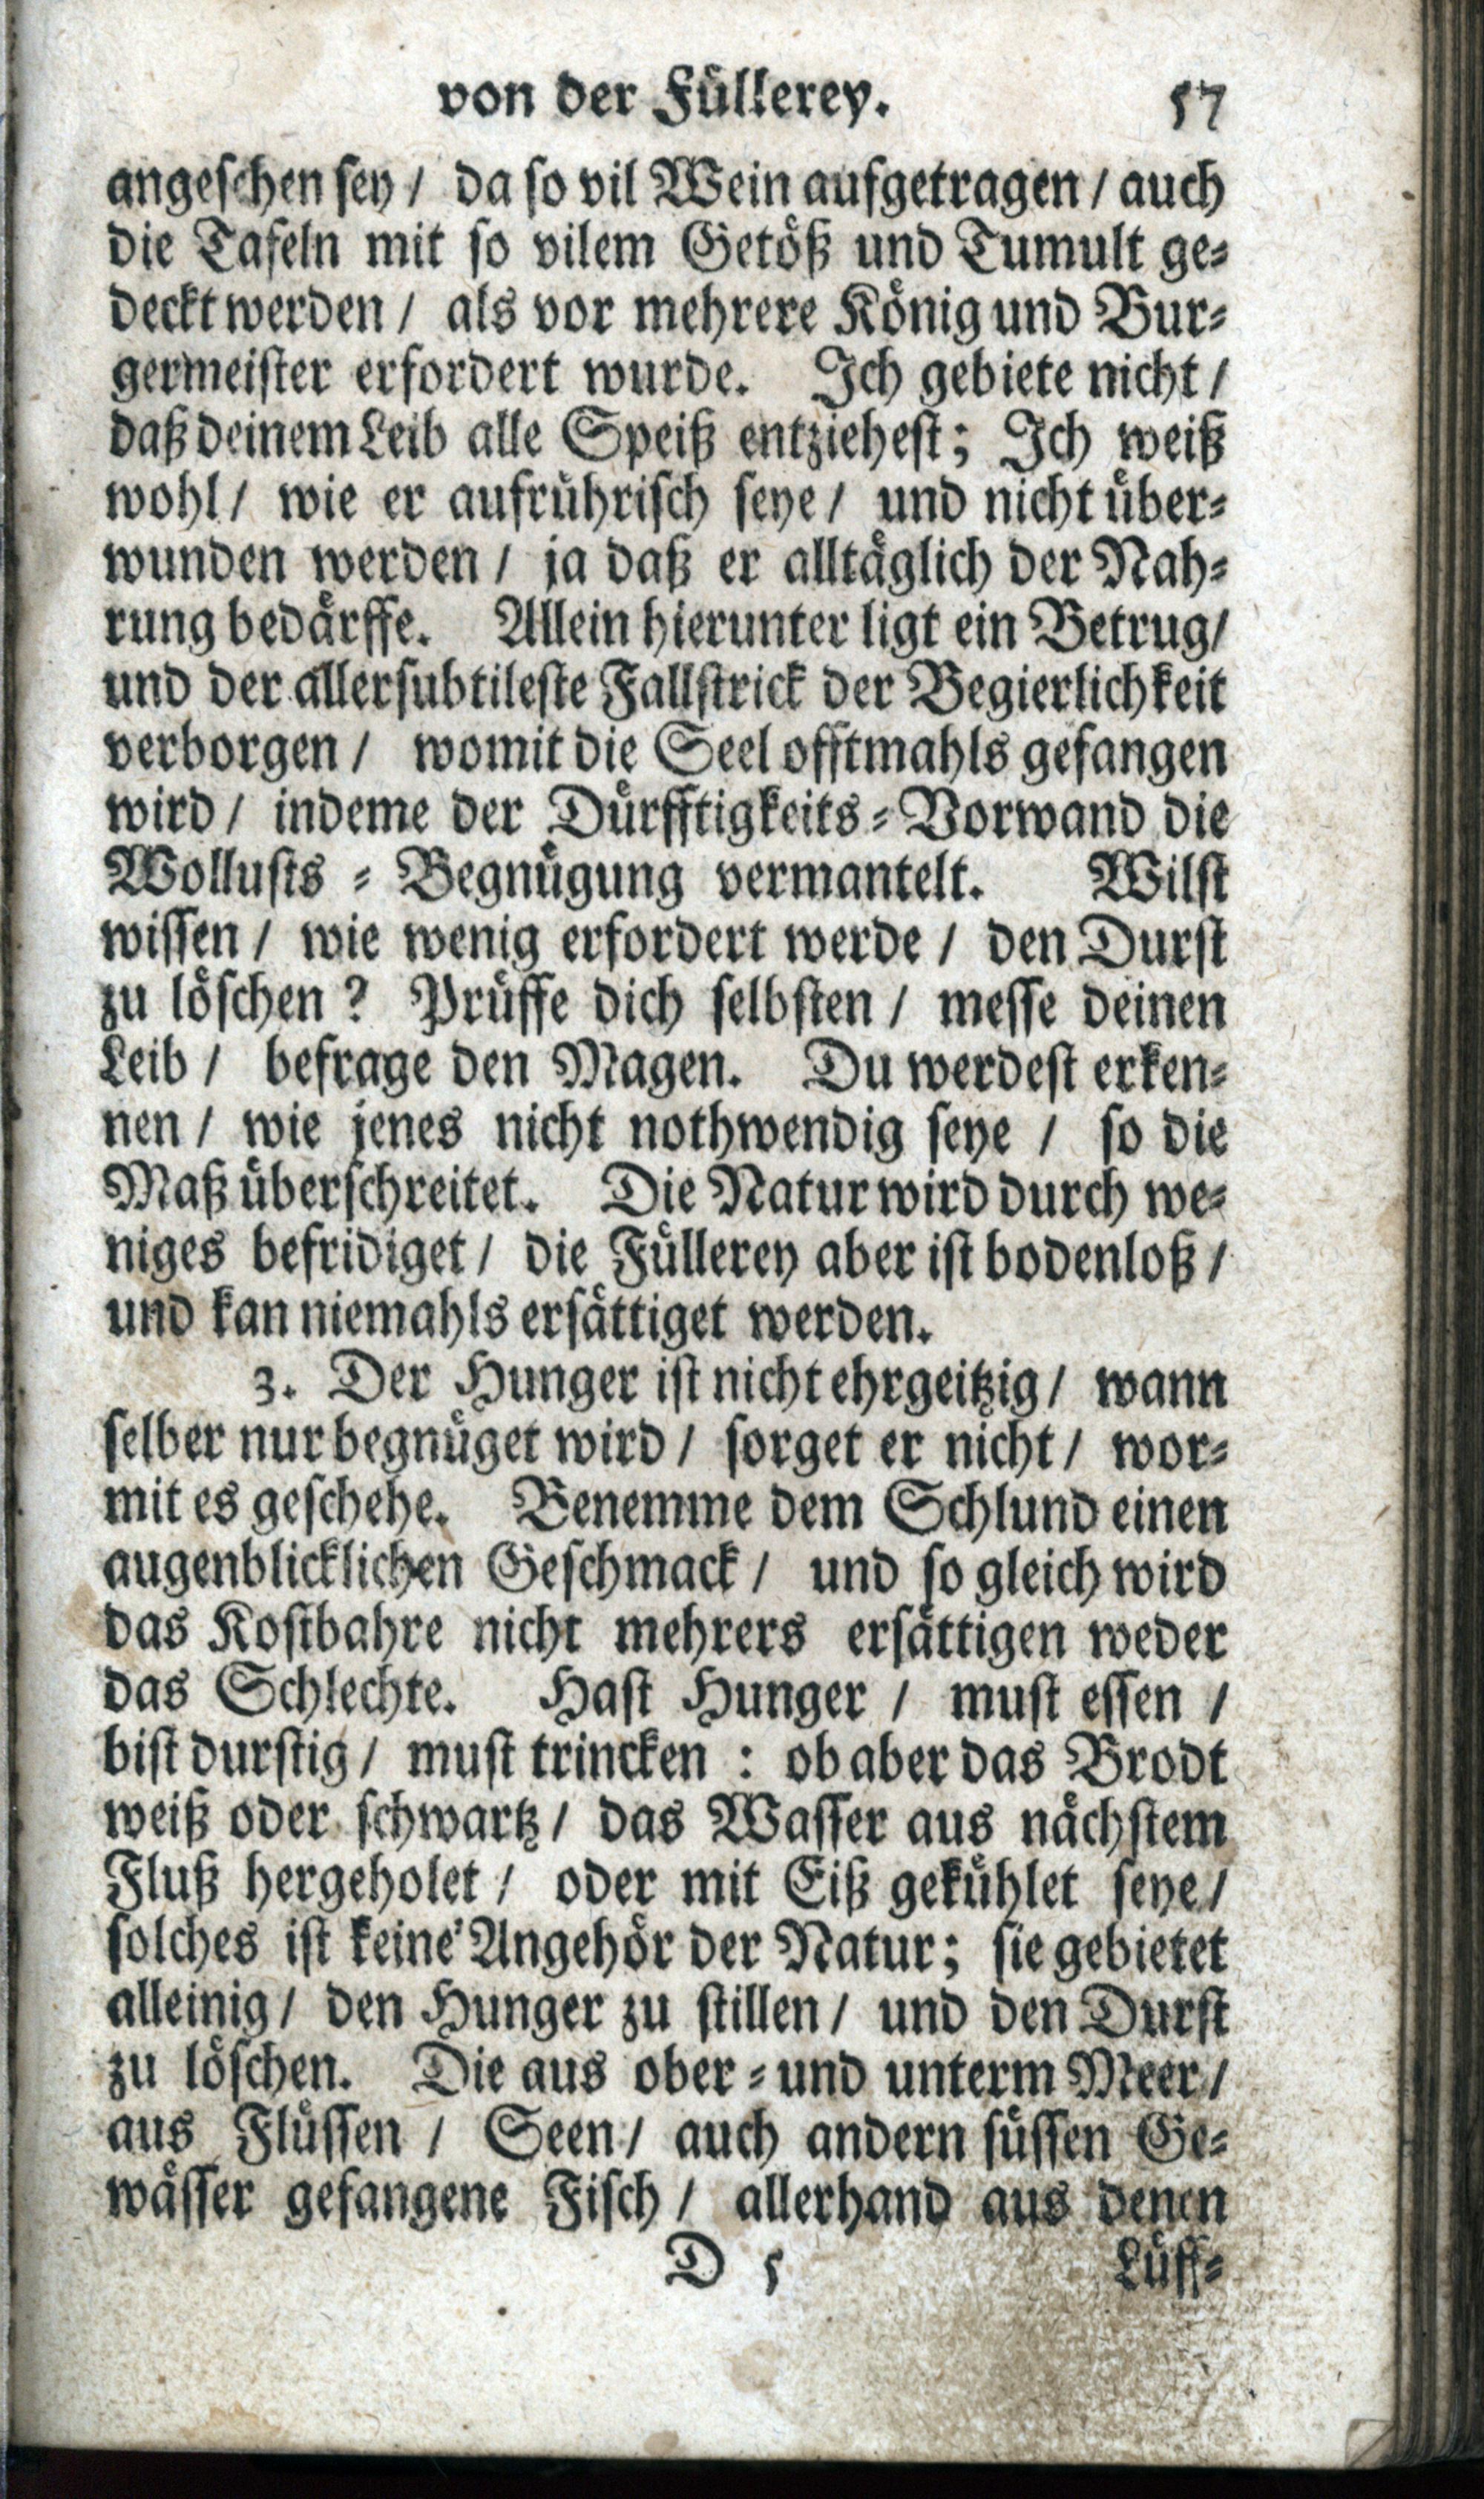 von der Füllerey. 57
angesehen sey / da so vil Wein aufgetragen / auch
die Tafeln mit so vilem Getöß und Tumult ge-
deckt werden / als vor mehrere König und Bur-
germeister erfordert wurde. Ich gebiete nicht /
daß deinem Leib alle Speiß entziehest; Ich weiß
wohl / wie er aufrührisch seye / und nicht über-
wunden werden / ja daß er alltäglich der Nah-
rung bedärffe. Allein hierunter ligt ein Betrug /
und der allersubtileste Fallstrick der Begierlichkeit
verborgen / womit die Seel offtmahls gefangen
wird / indeme der Dürfftigkeits-Vorwand die
Wollusts-Begnügung vermantelt. Wilst
wissen / wie wenig erfordert werde / den Durst
zu löschen? Prüffe dich selbsten / messe deinen
Leib / befrage den Magen. Du werdest erken-
nen / wie jenes nicht nothwendig seye / so die
Maß überschreitet. Die Natur wird durch we-
niges befridiget / die Füllerey aber ist bodenloß /
und kan niemahls ersättiget werden.
3. Der Hunger ist nicht ehrgeitzig / wann
selber nur begnüget wird / sorget er nicht / wor-
mit es geschehe. Benemme dem Schlund einen
augenblicklichen Geschmack / und so gleich wird
das Kostbahre nicht mehrers ersättigen weder
das Schlechte. Hast Hunger / must essen /
bist durstig / must trincken : ob aber das Brodt
weiß oder schwartz / das Wasser aus nächstem
Fluß hergeholet / oder mit Eiß gekühlet seye /
solches ist keine Angehör der Natur; sie gebietet
alleinig / den Hunger zu stillen / und den Durst
zu löschen. Die aus ober- und unterm Meer /
aus Flüssen / Seen / auch andern süssen Ge-
wässer gefangene Fisch / allerhand aus denen
D 5 Lüff-